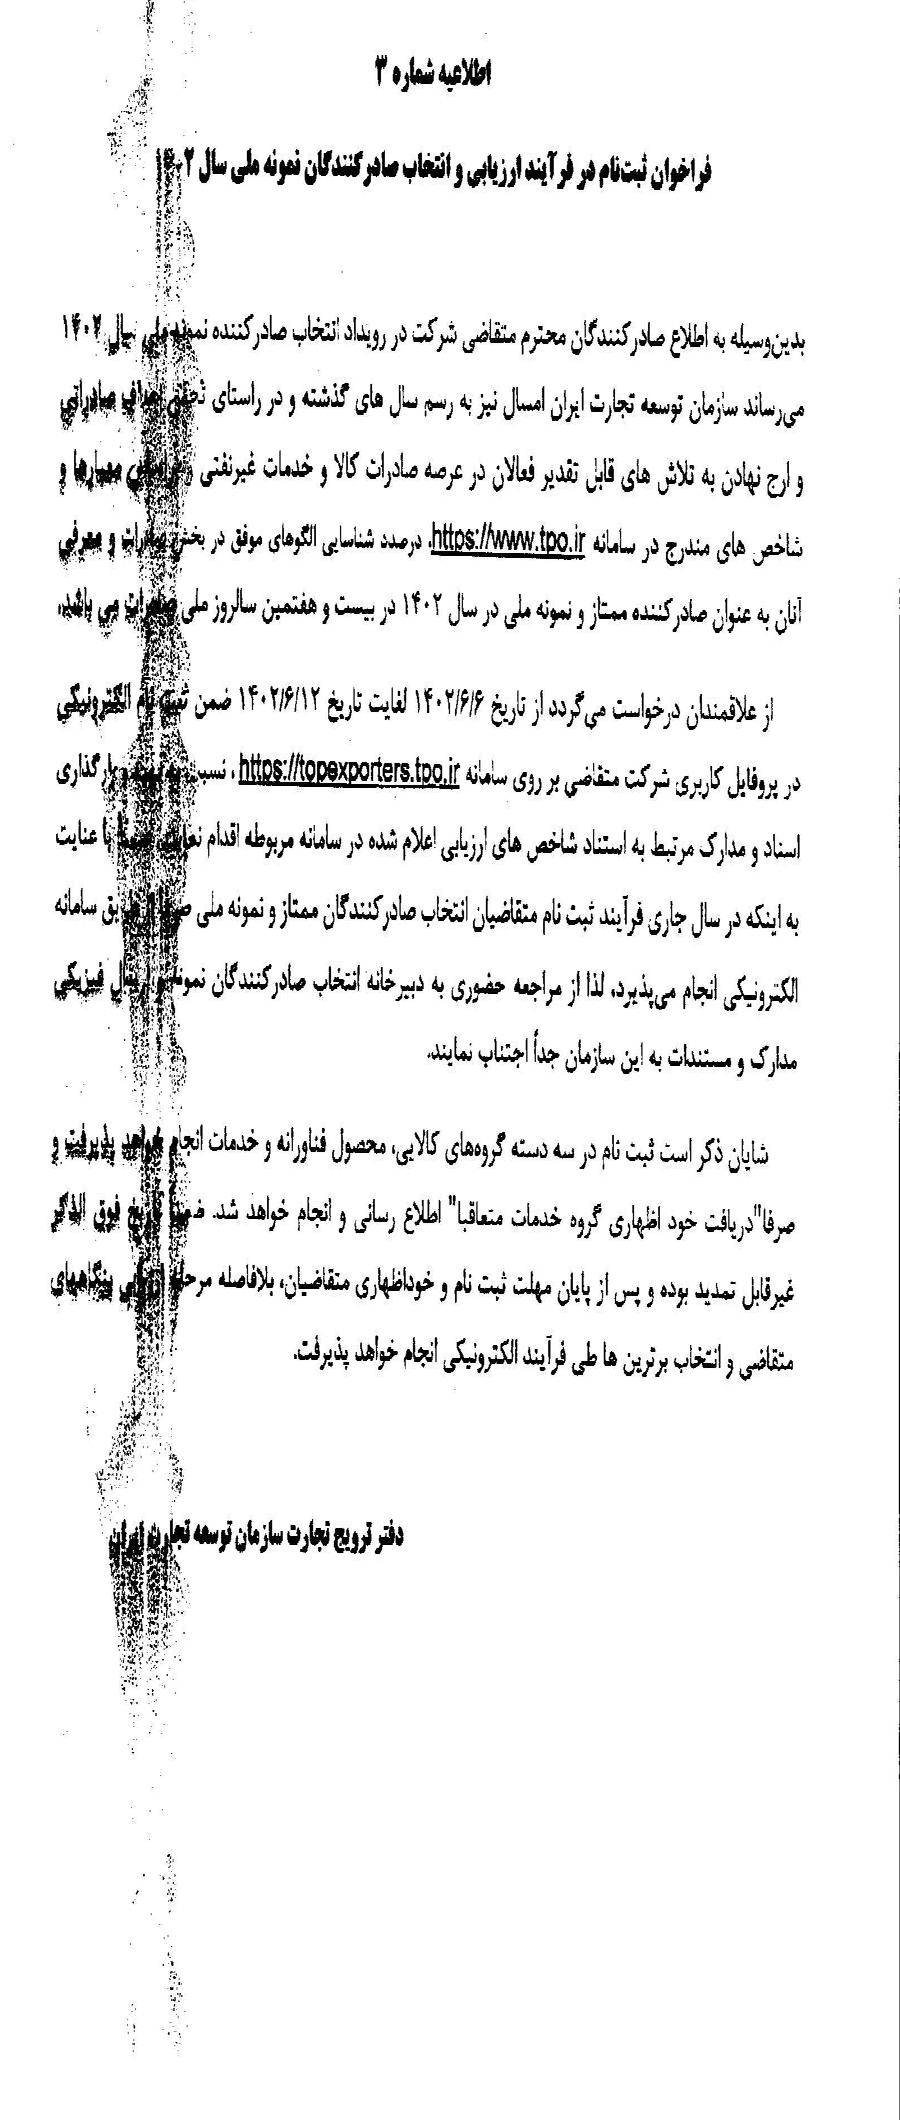 اطلاعیه شماره ۳
فراخوان ثبت‌نام در فرآیند ارزیابی و انتخاب صادرکنندگان نمونه ملی سال ۱۴۰۲
بدین‌وسیله به اطلاع صادرکنندگان محترم متقاضی شرکت در رویداد انتخاب صادرکننده نمونه ملی سال ۱۴۰۲
می‌رساند سازمان توسعه تجارت ایران امسال نیز به رسم سال های گذشته و در راستای تحقق اهداف صادراتی
و ارج نهادن به تلاش های قابل تقدیر فعالان در عرصه صادرات کالا و خدمات غیرنفتی و براساس معیارها و
شاخص های مندرج در سامانه https://www.tpo.ir، درصدد شناسایی الگوهای موفق در بخش صادرات و معرفی
آنان به عنوان صادرکننده ممتاز و نمونه ملی در سال ۱۴۰۲ در بیست و هفتمین سالروز ملی صادرات می باشد.
از علاقمندان درخواست می‌گردد از تاریخ ۱۴۰۲/۶/۶ لغایت تاریخ ۱۴۰۲/۶/۱۲ ضمن ثبت نام الکترونیکی
در پروفایل کاربری شرکت متقاضی بر روی سامانه https://topexporters.tpo.ir ، نسبت به تهیه و بارگذاری
اسناد و مدارک مرتبط به استناد شاخص های ارزیابی اعلام شده در سامانه مربوطه اقدام نمایند. ضمنا با عنایت
به اینکه در سال جاری فرآیند ثبت نام متقاضیان انتخاب صادرکنندگان ممتاز و نمونه ملی صرفا از طریق سامانه
الکترونیکی انجام می‌پذیرد، لذا از مراجعه حضوری به دبیرخانه انتخاب صادرکنندگان نمونه و ارسال فیزیکی
مدارک و مستندات به این سازمان جداً اجتناب نمایند.
شایان ذکر است ثبت نام در سه دسته گروه‌های کالایی، محصول فناورانه و خدمات انجام خواهد پذیرفت و
صرفا"دریافت خود اظهاری گروه خدمات متعاقبا" اطلاع رسانی و انجام خواهد شد. ضمنا تاریخ فوق الذکر
غیرقابل تمدید بوده و پس از پایان مهلت ثبت نام و خوداظهاری متقاضیان، بلافاصله مرحله ارزیابی بنگاههای
متقاضی و انتخاب برترین ها طی فرآیند الکترونیکی انجام خواهد پذیرفت.
دفتر ترویج تجارت سازمان توسعه تجارت ایران